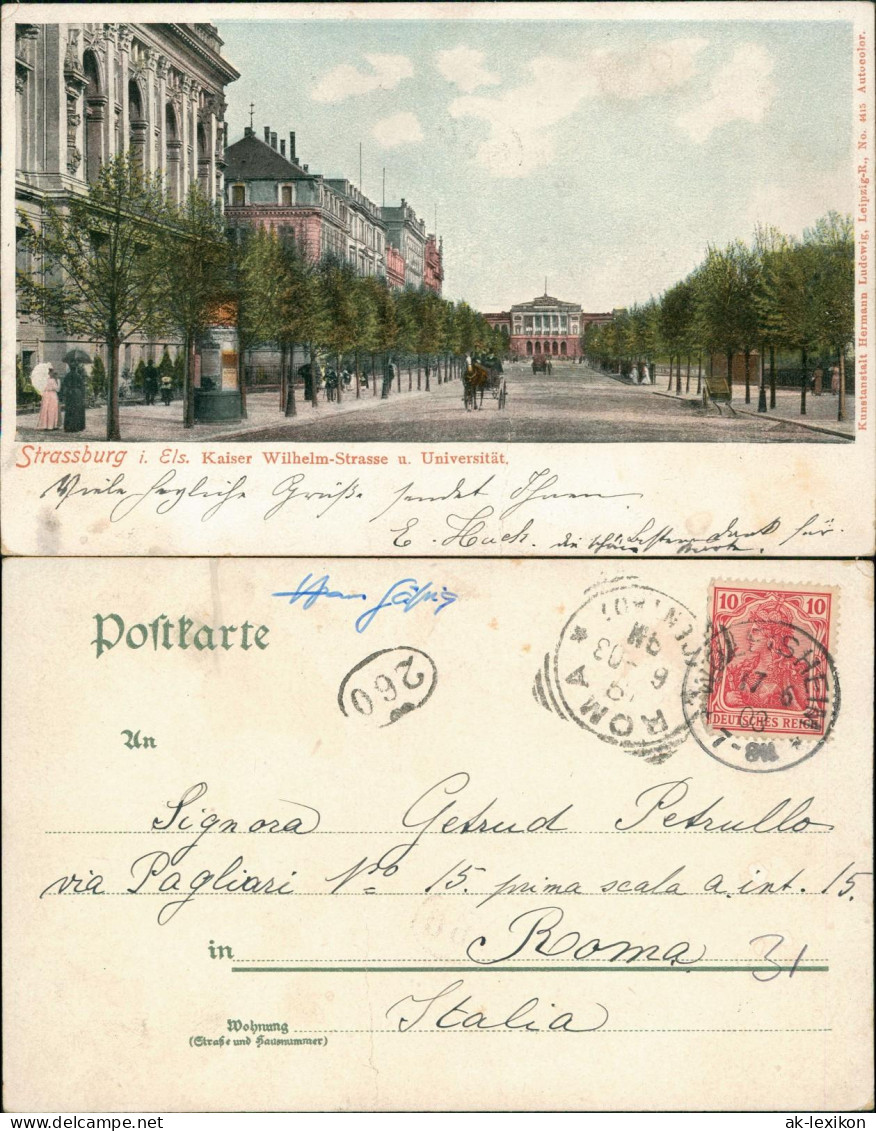 Kunstanstalt Hermann Ludewig, Leipzig-R., No. 4415 Autocolor.
Strassburg i. Els. Kaiser Wilhelm-Strasse u. Universität.
Viele herzliche Grüße sendet Ihnen
E. Huck. besten Dank für
die schöne Karte.
Postkarte
260
ROMA
10 10
DEUTSCHES REICH
An
Signora Getrud Petrullo
via Pagliari No 15. prima scala a. int. 15.
in Roma
31
Italia
Wohnung
(Straße und Hausnummer)
ak-lexikon